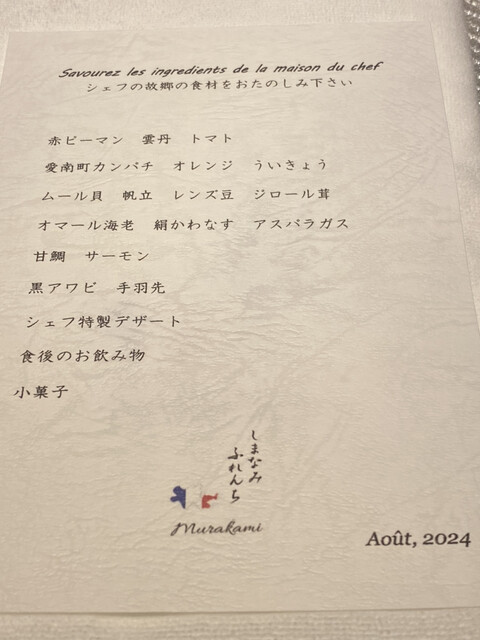 Savourez les ingredients de la maison du chef
シェフの故郷の食材をおたのしみ下さい
赤ピーマン　雲丹　トマト
愛南町カンパチ　オレンジ　ういきょう
ムール貝　帆立　レンズ豆　ジロール茸
オマール海老　絹かわなす　アスパラガス
甘鯛　サーモン
黒アワビ　手羽先
シェフ特製デザート
食後のお飲み物
小菓子
しまなみ
ふれんち
Murakami
Août, 2024